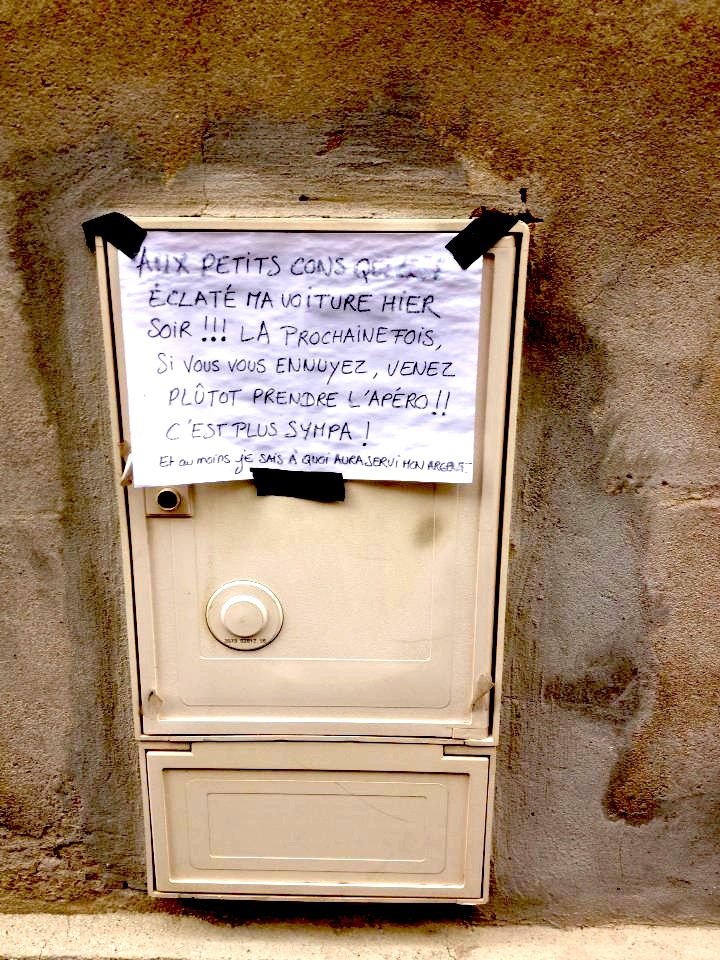 AUX PETITS CONS
ÉCLATÉ MA VOITURE HIER
SOIR !!! LA PROCHAINE FOIS,
Si VOUS VOUS ENNUYEZ, VENEZ
PLÛTOT PRENDRE L'APÉRO !!
C'EST PLUS SYMPA !
Et au moins je SAIS À QUOI AURA SERVI MON ARGENT.